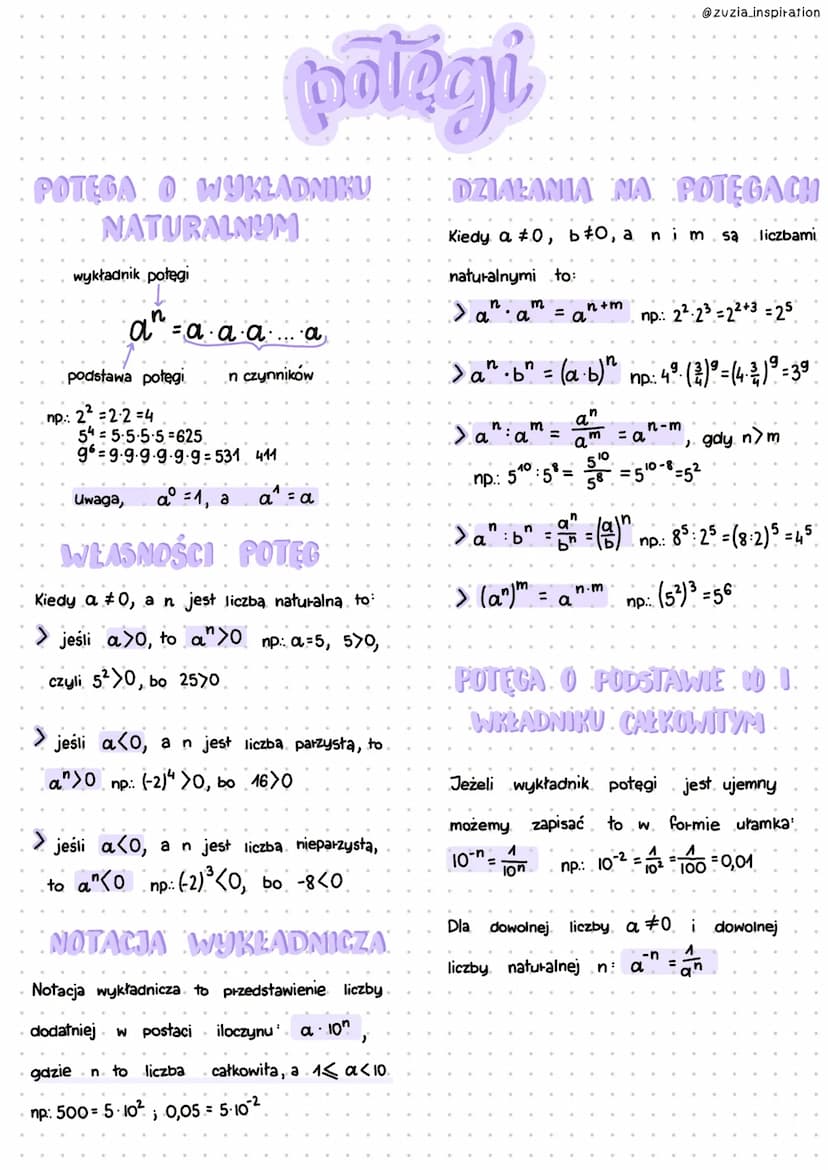 @zuzia_inspiration
potęgi
POTĘGA O WYKŁADNIKU
NATURALNYM
wykładnik potęgi
aⁿ = a · a · a · ... · a
podstawa potęgi n czynników
np.: 2² = 2·2 = 4
5⁴ = 5·5·5·5 = 625
9⁶ = 9·9·9·9·9·9 = 531 411
Uwaga, a⁰ = 1, a a¹ = a
WŁASNOŚCI POTĘG
Kiedy a ≠ 0, a n jest liczbą naturalną to:
> jeśli a>0, to aⁿ>0 np.: a=5, 5>0,
czyli 5²>0, bo 25>0
> jeśli a<0, a n jest liczbą parzystą, to
aⁿ>0 np.: (-2)⁴ >0, bo 16>0
> jeśli a<0, a n jest liczbą nieparzystą,
to aⁿ<0 np.: (-2)³<0, bo -8<0
NOTACJA WYKŁADNICZA
Notacja wykładnicza to przedstawienie liczby
dodatniej w postaci iloczynu: a · 10ⁿ,
gdzie n to liczba całkowita, a 1⩽ a<10
np.: 500 = 5 · 10² ; 0,05 = 5·10⁻²
DZIAŁANIA NA POTĘGACH
Kiedy a ≠0, b≠0, a n i m są liczbami
naturalnymi to:
> aⁿ · aᵐ = aⁿ⁺ᵐ np.: 2²·2³ = 2²⁺³ = 2⁵
> aⁿ · bⁿ = (a·b)ⁿ np.: 4⁹·(3/4)⁹ = (4·3/4)⁹ = 3⁹
> aⁿ : aᵐ = aⁿ/aᵐ = aⁿ⁻ᵐ, gdy n>m
np.: 5¹⁰ : 5⁸ = 5¹⁰/5⁸ = 5¹⁰⁻⁸ = 5²
> aⁿ : bⁿ = aⁿ/bⁿ = (a/b)ⁿ np.: 8⁵ : 2⁵ = (8:2)⁵ = 4⁵
> (aⁿ)ᵐ = aⁿ·ᵐ np.: (5²)³ = 5⁶
POTĘGA O PODSTAWIE 10 I
WKŁADNIKU CAŁKOWITYM
Jeżeli wykładnik potęgi jest ujemny
możemy zapisać to w formie ułamka:
10⁻ⁿ = 1/10ⁿ np.: 10⁻² = 1/10² = 1/100 = 0,01
Dla dowolnej liczby a ≠ 0 i dowolnej
liczby naturalnej n: a⁻ⁿ = 1/aⁿ